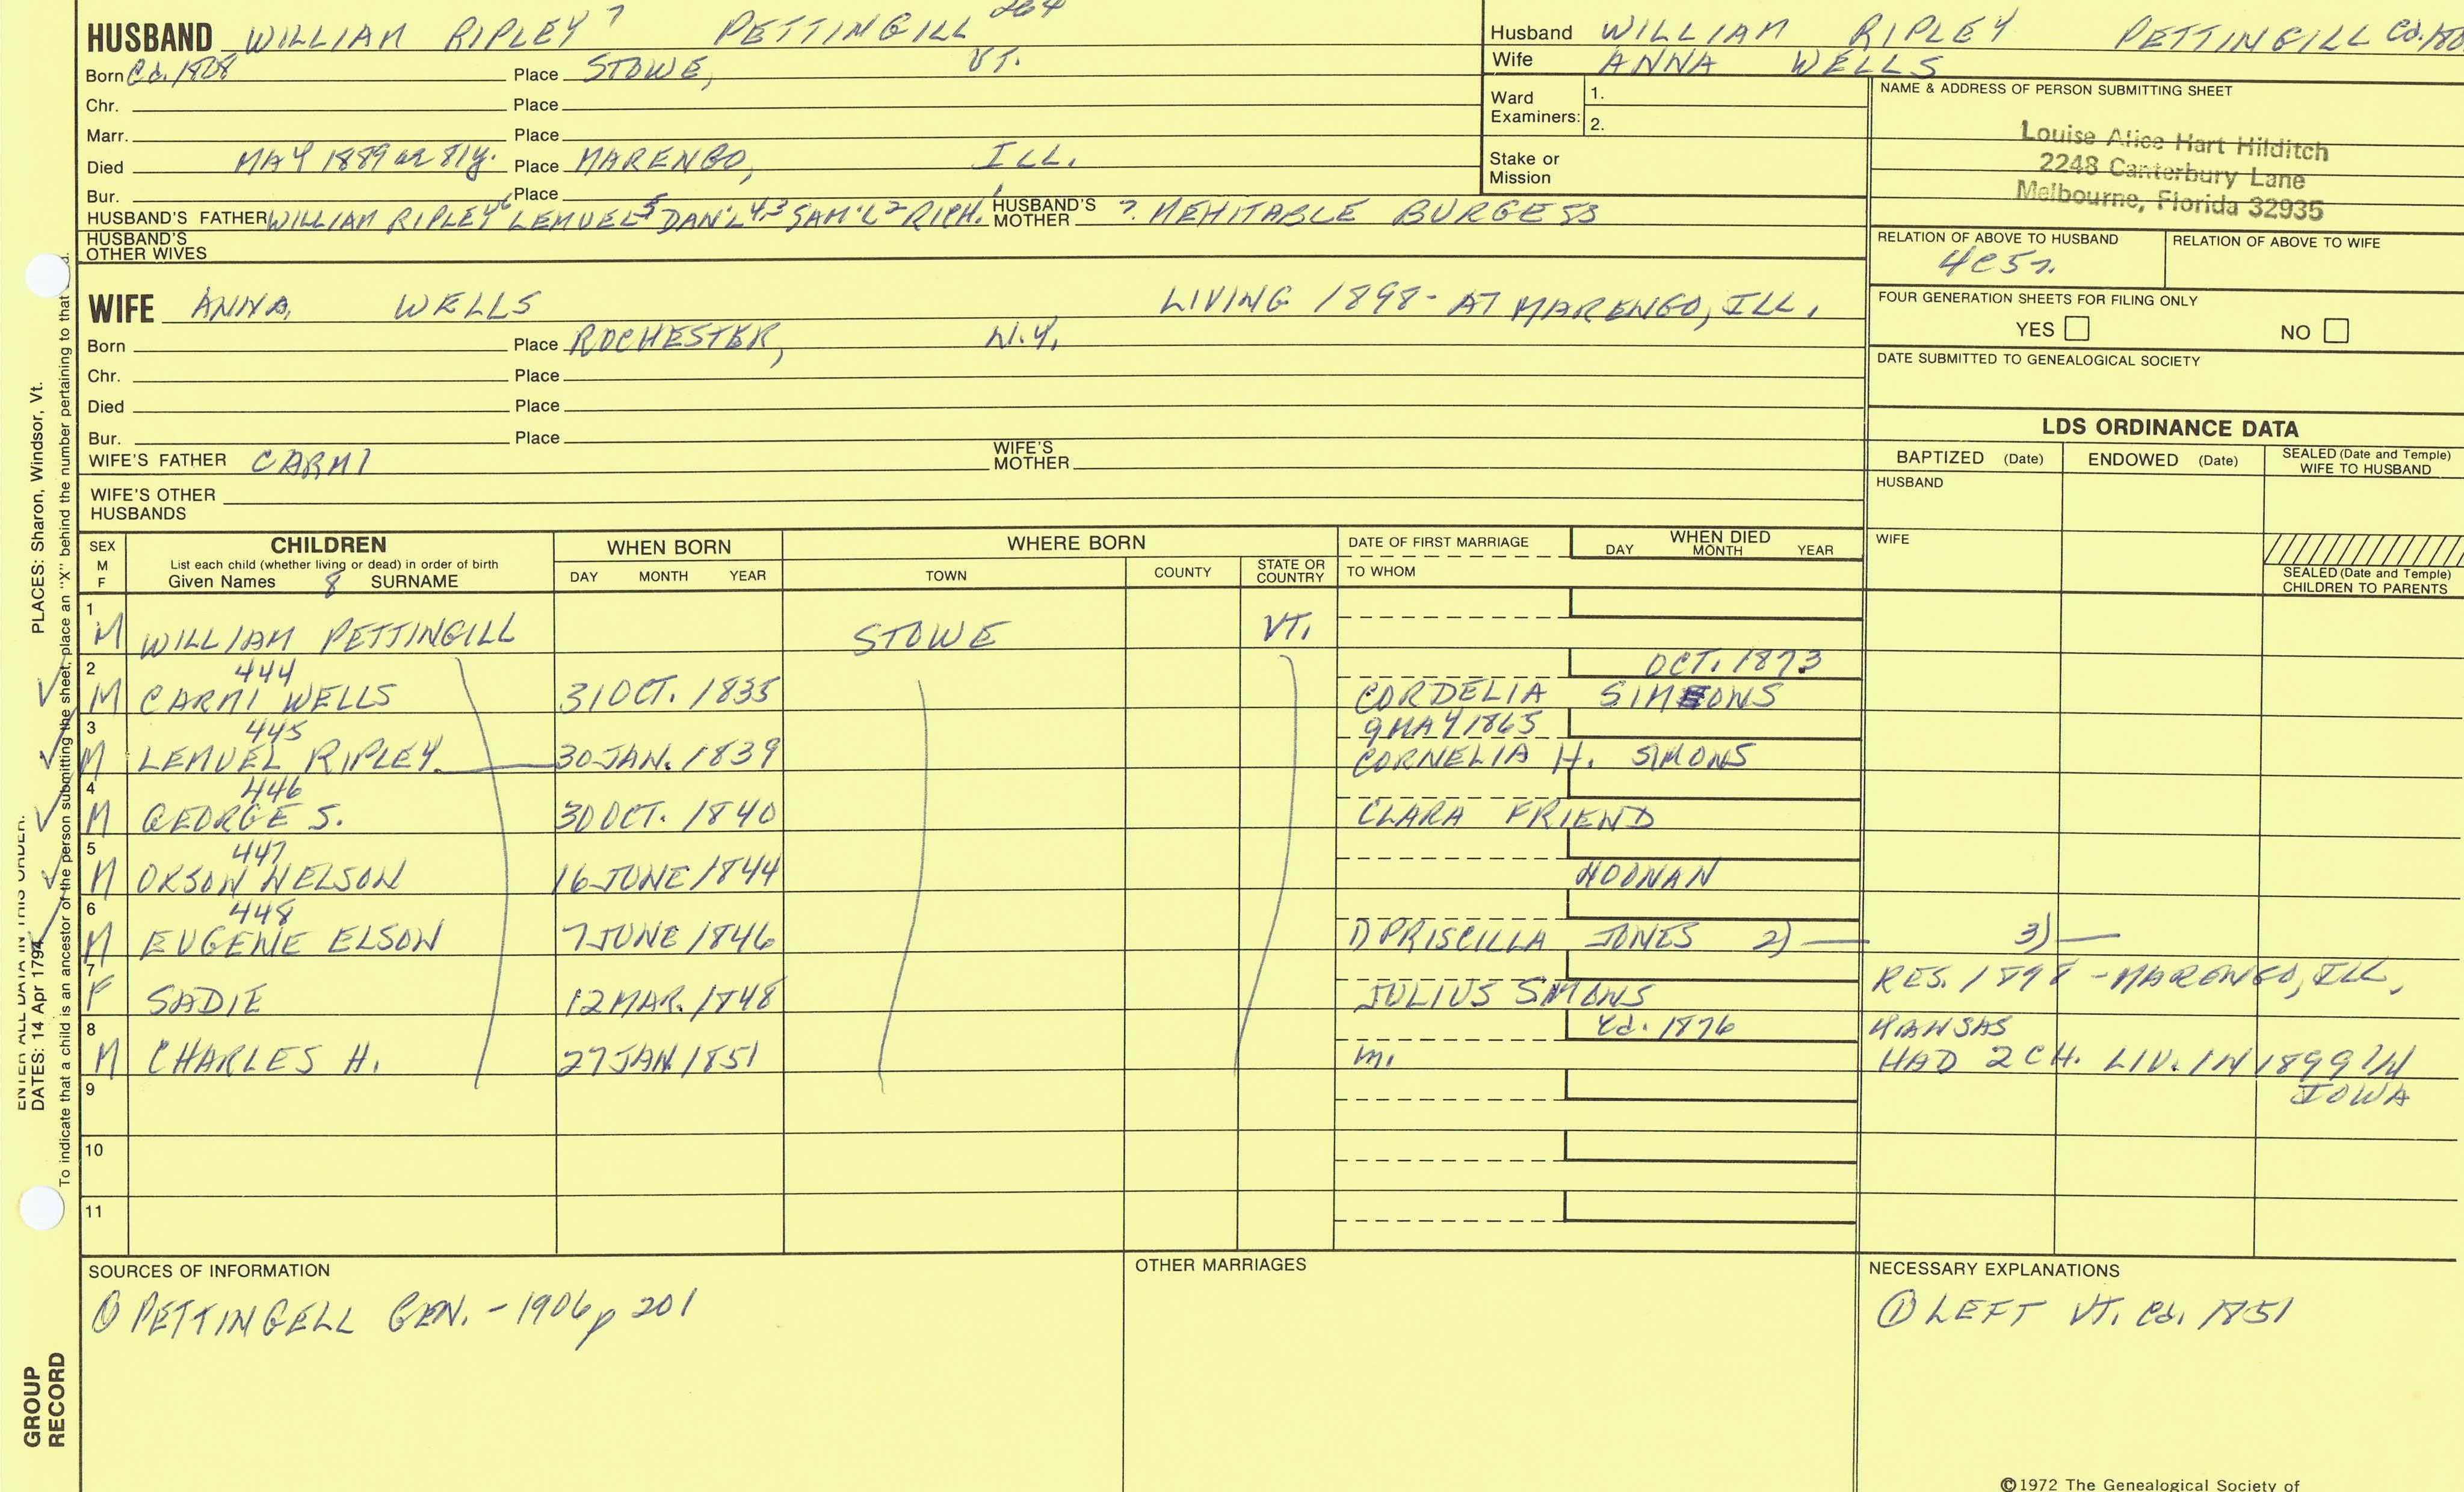 HUSBAND WILLIAM RIPLEY 7 PETTINGILL 264
Born Cd. 1808 Place STOWE, VT.
Chr. Place
Marr. Place
Died MAY 1889 ae 81y. Place MARENGO, ILL.
Bur. Place
HUSBAND'S FATHER WILLIAM RIPLEY 6 LEMUEL 5 DAN'L 4,3 SAM'L 2 RICH. 1 HUSBAND'S MOTHER ? MEHITABLE BURGESS
HUSBAND'S OTHER WIVES
Husband WILLIAM RIPLEY PETTINGILL
Wife ANNA WELLS
Ward Examiners: 1.
2.
Stake or Mission
NAME & ADDRESS OF PERSON SUBMITTING SHEET
Louise Alice Hart Hilditch
2248 Canterbury Lane
Melbourne, Florida 32935
RELATION OF ABOVE TO HUSBAND RELATION OF ABOVE TO WIFE
4C5r.
FOUR GENERATION SHEETS FOR FILING ONLY
YES NO
DATE SUBMITTED TO GENEALOGICAL SOCIETY
WIFE ANNA WELLS LIVING 1898- AT MARENGO, ILL.
Born Place ROCHESTER, N.Y.
Chr. Place
Died Place
Bur. Place
WIFE'S FATHER CARMI WIFE'S MOTHER
WIFE'S OTHER HUSBANDS
LDS ORDINANCE DATA
BAPTIZED (Date) ENDOWED (Date) SEALED (Date and Temple) WIFE TO HUSBAND
HUSBAND
WIFE
SEALED (Date and Temple) CHILDREN TO PARENTS
SEX M F CHILDREN WHEN BORN WHERE BORN DATE OF FIRST MARRIAGE WHEN DIED
List each child (whether living or dead) in order of birth DAY MONTH YEAR
Given Names 8 SURNAME DAY MONTH YEAR TOWN COUNTY STATE OR COUNTRY TO WHOM
1
M WILLIAM PETTINGILL STOWE VT.
2 444 OCT. 1873
M CARMI WELLS 31 OCT. 1835 CORDELIA SIMMONS
3 445 9 MAY 1865
M LEMUEL RIPLEY 30 JAN. 1839 CORNELIA H. SIMONS
4 446
M GEORGE S. 30 OCT. 1840 CLARA FRIEND
5 447
M ORSON NELSON 16 JUNE 1844 HOONAN
6 448
M EUGENE ELSON 7 JUNE 1846 1) PRISCILLA JONES 2) — 3) —
7 RES. 1898 - MARENGO, ILL.
F SADIE 12 MAR. 1848 JULIUS SIMONS
8 Cd. 1876 KANSAS
M CHARLES H. 27 JAN. 1851 m. HAD 2 CH. LIV. IN 1899 IN
IOWA
9
10
11
SOURCES OF INFORMATION
① PETTINGELL GEN. - 1906 p 201
OTHER MARRIAGES
NECESSARY EXPLANATIONS
① LEFT VT. Cd. 1851
©1972 The Genealogical Society of
PLACES: Sharon, Windsor, Vt.
ENTER ALL DATA IN THIS ORDER:
DATES: 14 Apr 1794
To indicate that a child is an ancestor of the person submitting the sheet, place an "X" behind the number pertaining to that
GROUP
RECORD